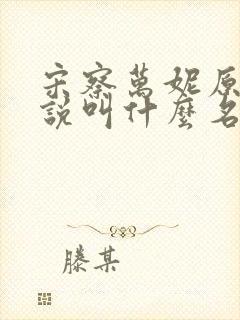 宋察萬妮原
說叫什麼名
滕某